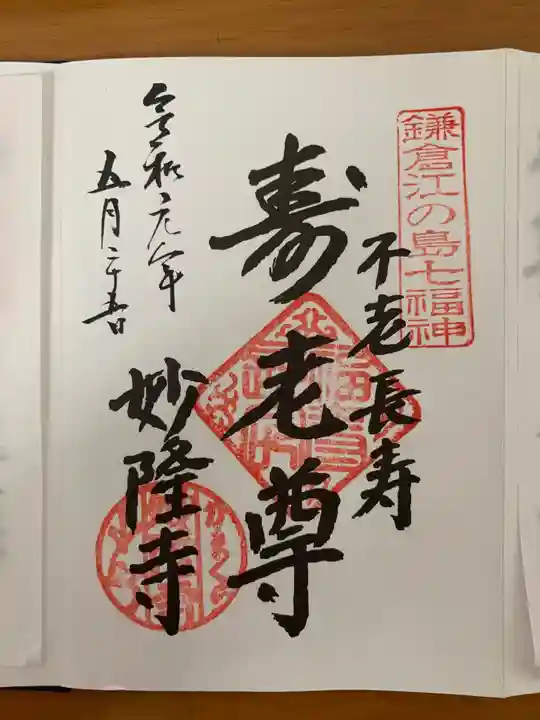 鎌倉江の島七福神
不老長寿
寿老尊
妙隆寺
令和元年
五月二十五日
かまくら